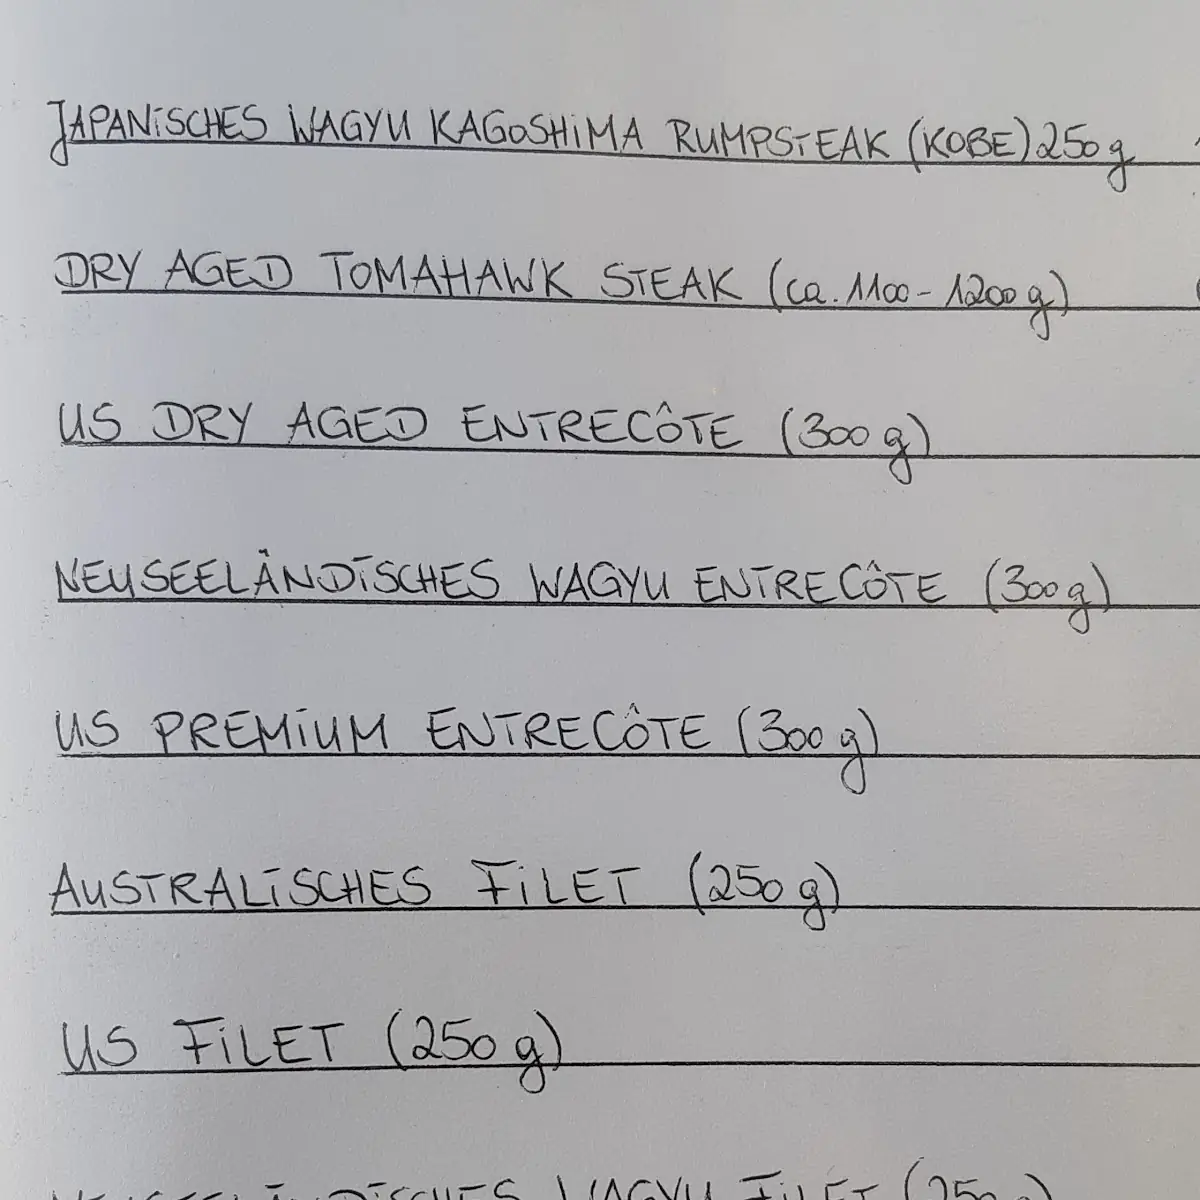 JAPANISCHES WAGYU KAGOSHIMA RUMPSTEAK (KOBE) 250 g
DRY AGED TOMAHAWK STEAK (ca. 1100 - 1200 g)
US DRY AGED ENTRECÔTE (300 g)
NEUSEELÄNDISCHES WAGYU ENTRECÔTE (300 g)
US PREMIUM ENTRECÔTE (300 g)
AUSTRALISCHES FILET (250 g)
US FILET (250 g)
NEUSEELÄNDISCHES WAGYU FILET (250 g)